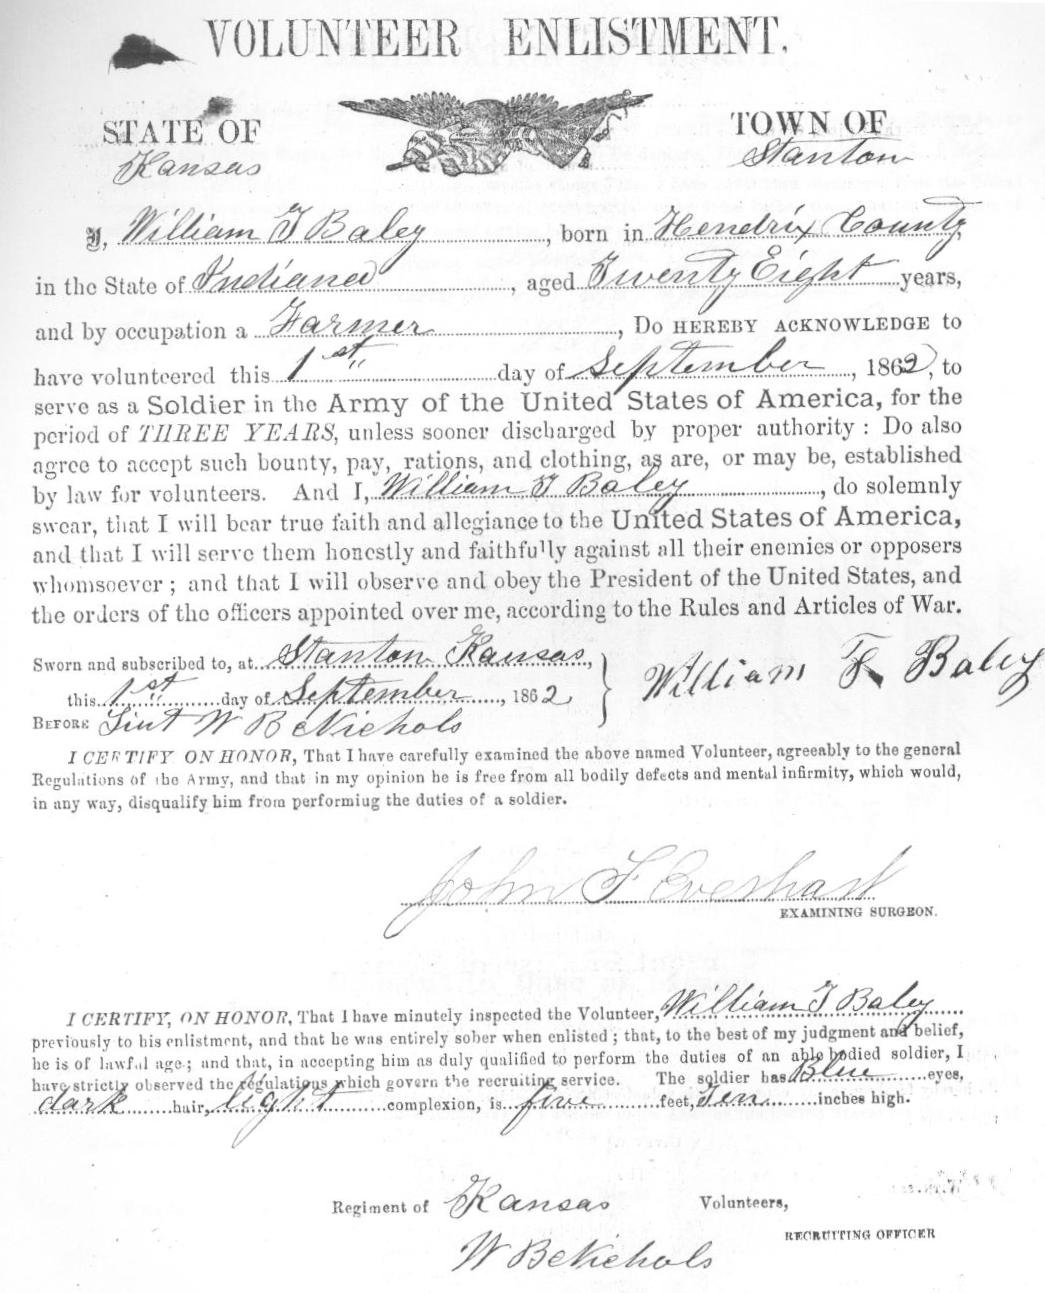 VOLUNTEER ENLISTMENT.
STATE OF
Kansas
TOWN OF
Stanton
I, William T Baley, born in Hendrix County,
in the State of Indiana, aged Twenty Eight years,
and by occupation a Farmer, DO HEREBY ACKNOWLEDGE to
have volunteered this 1st day of September, 1862, to
serve as a Soldier in the Army of the United States of America, for the
period of THREE YEARS, unless sooner discharged by proper authority: Do also
agree to accept such bounty, pay, rations, and clothing, as are, or may be, established
by law for volunteers. And I, William T Baley, do solemnly
swear, that I will bear true faith and allegiance to the United States of America,
and that I will serve them honestly and faithfully against all their enemies or opposers
whomsoever; and that I will observe and obey the President of the United States, and
the orders of the officers appointed over me, according to the Rules and Articles of War.
Sworn and subscribed to, at Stanton Kansas,
this 1st day of September, 1862
BEFORE Lint W B Nichols
William F Baley
I CERTIFY ON HONOR, That I have carefully examined the above named Volunteer, agreeably to the general
Regulations of the Army, and that in my opinion he is free from all bodily defects and mental infirmity, which would,
in any way, disqualify him from performing the duties of a soldier.
John F Everhart
EXAMINING SURGEON.
I CERTIFY, ON HONOR, That I have minutely inspected the Volunteer, William T Baley
previously to his enlistment, and that he was entirely sober when enlisted; that, to the best of my judgment and belief,
he is of lawful age; and that, in accepting him as duly qualified to perform the duties of an able bodied soldier, I
have strictly observed the regulations which govern the recruiting service. The soldier has Blue eyes,
dark hair, light complexion, is five feet, Ten inches high.
Regiment of Kansas Volunteers,
W B Nichols
RECRUITING OFFICER